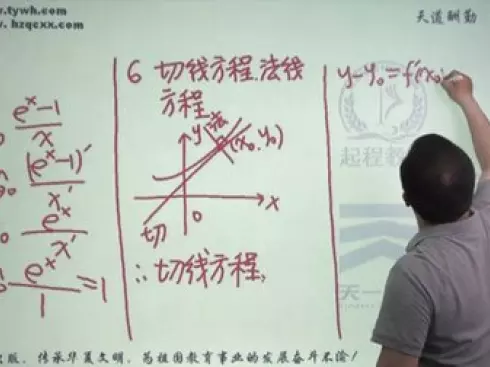 www.tywh.com
www.hzqcxx.com
天道酬勤
e^x-1
x
(e^x-1)'
x'
e^x
x'
e^x
1
=1
6 切线方程.法线
方程
y
法
(x₀,y₀)
0
x
切
∴切线方程,
y-y₀=f'(x₀)
起程教
天一
传承华夏文明，为祖国教育事业的发展奋斗不渝！